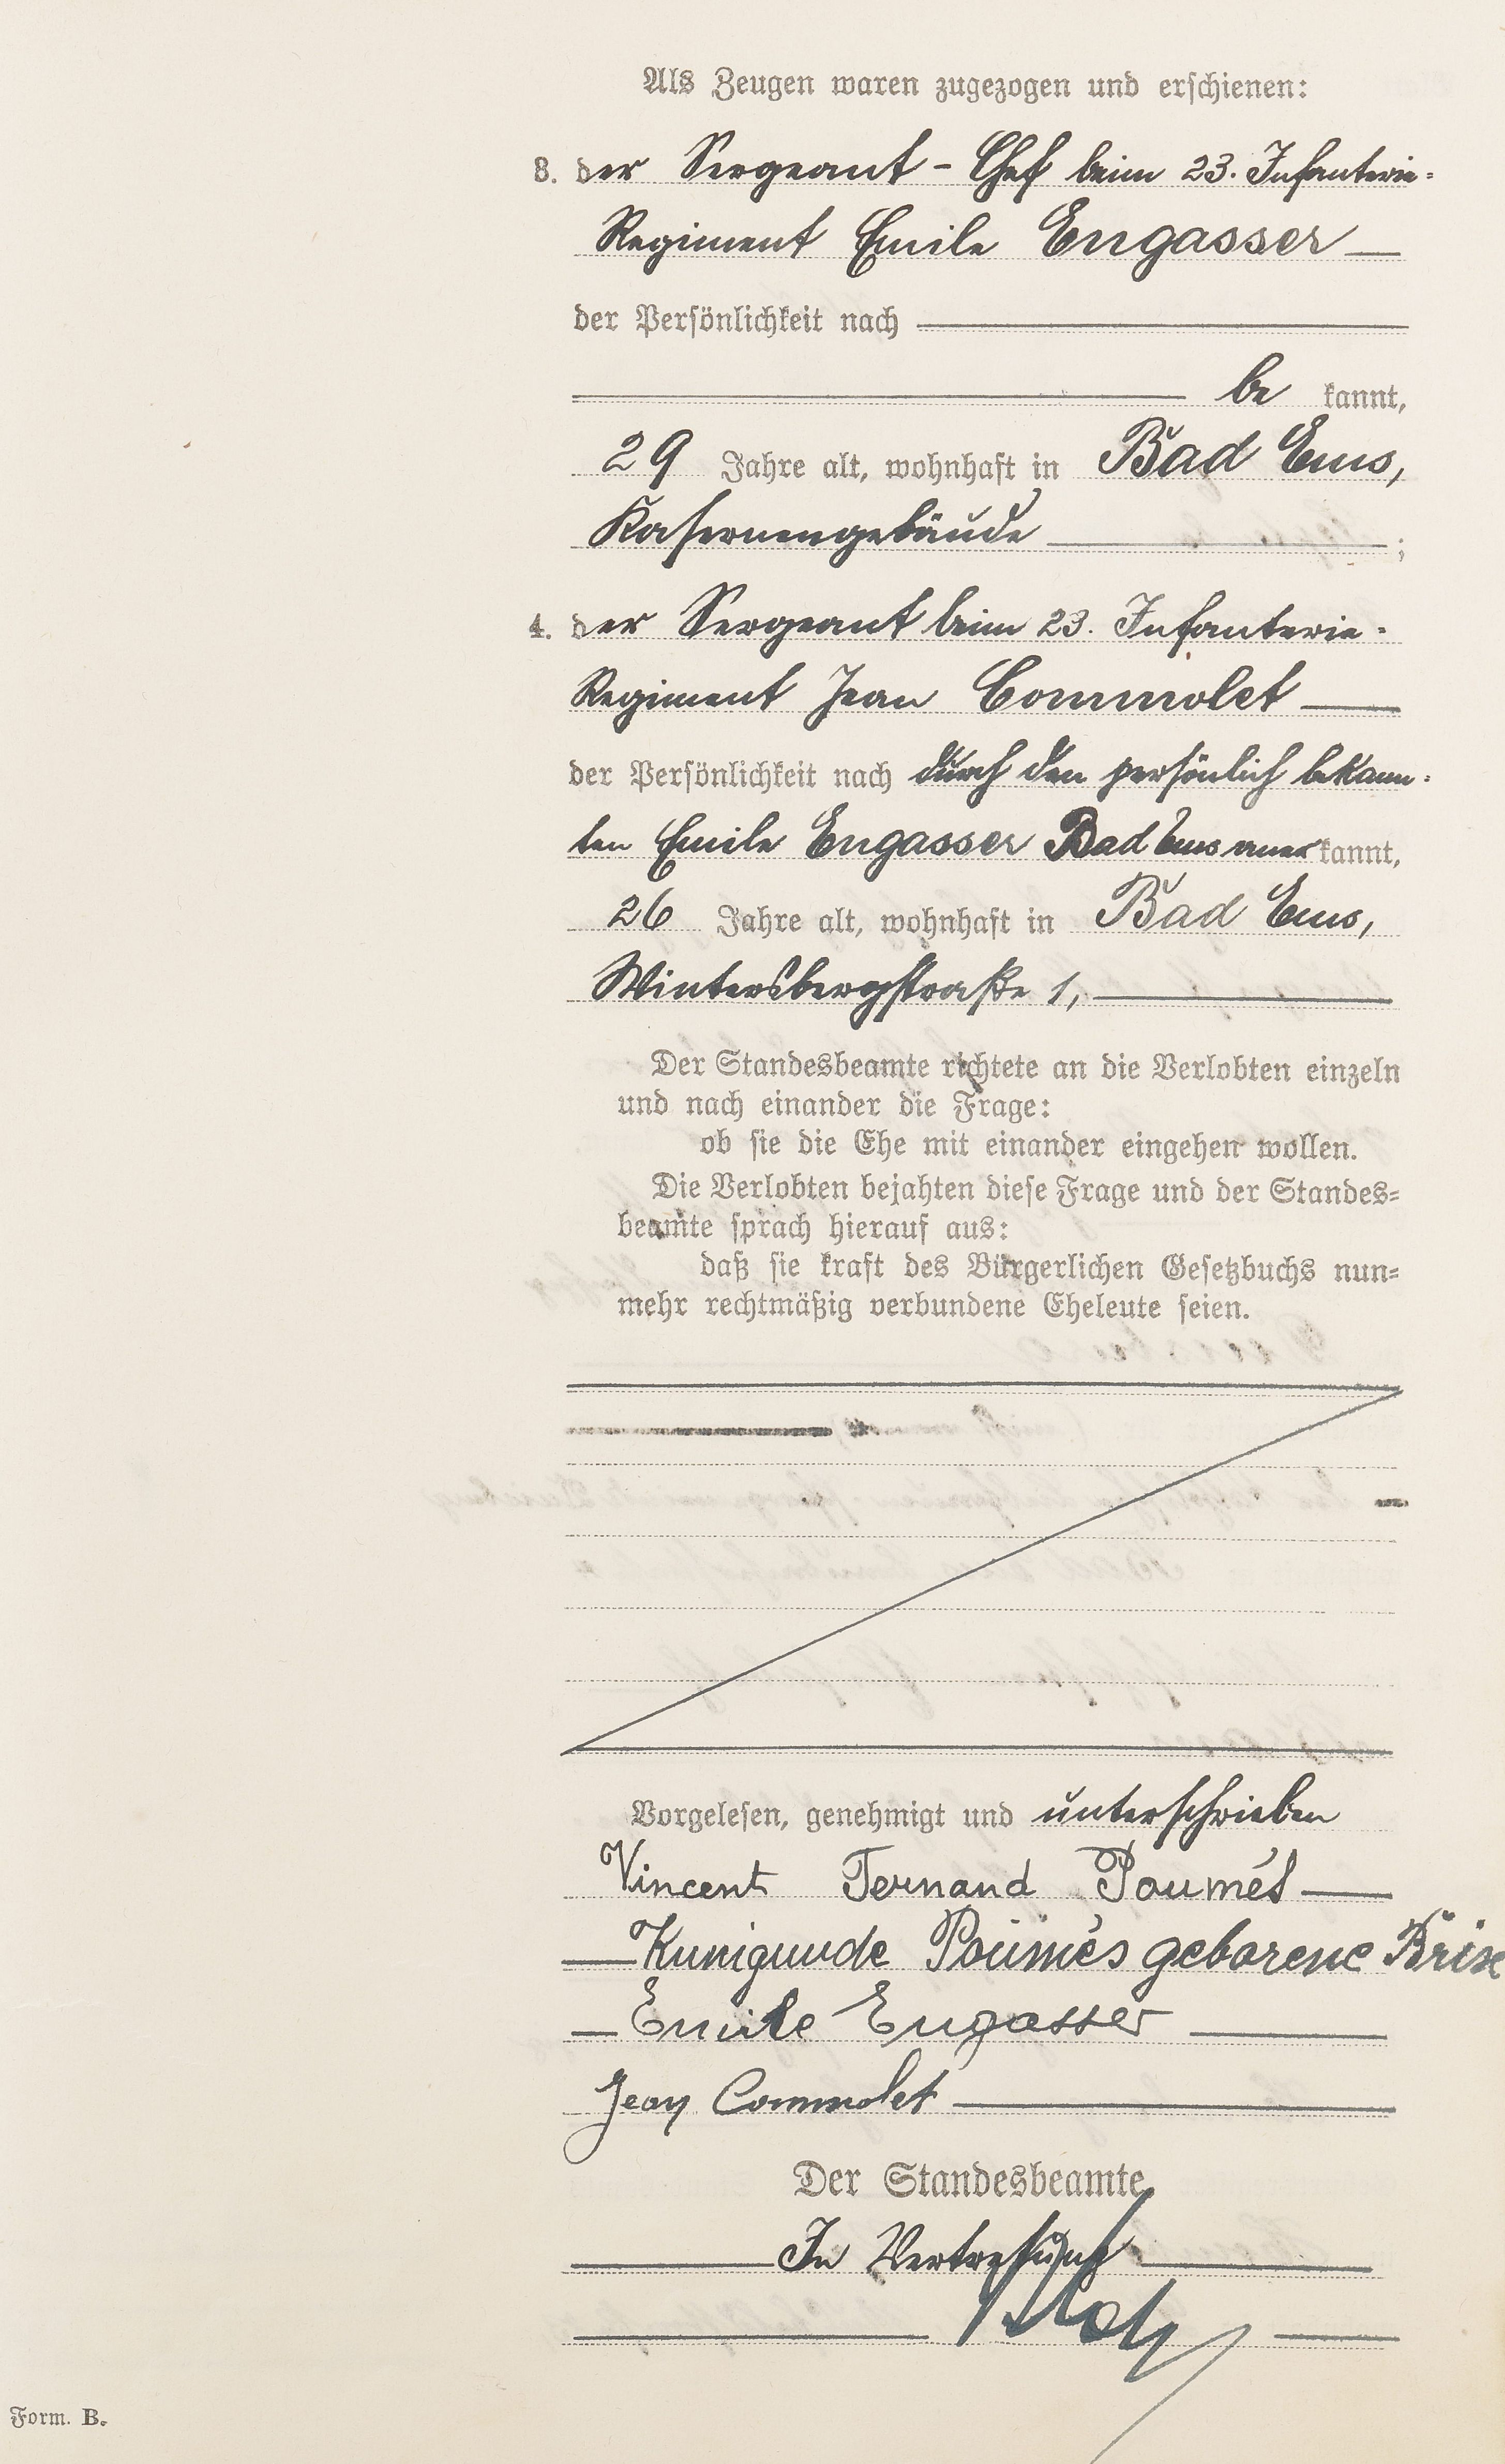 Als Zeugen waren zugezogen und erschienen:
3. der Sergeant-Chef beim 23. Infanterie-
Regiment Emile Engasser
der Persönlichkeit nach
be kannt,
29 Jahre alt, wohnhaft in Bad Ems,
Kasernengebäude ;
4. der Sergeant beim 23. Infanterie-
Regiment Jean Commolet
der Persönlichkeit nach durch den persönlich bekann-
ten Emile Engasser Bad Ems aner kannt,
26 Jahre alt, wohnhaft in Bad Ems,
Wintersbergstraße 1,
Der Standesbeamte richtete an die Verlobten einzeln
und nach einander die Frage:
ob sie die Ehe mit einander eingehen wollen.
Die Verlobten bejahten diese Frage und der Standes-
beamte sprach hierauf aus:
daß sie kraft des Bürgerlichen Gesetzbuchs nun-
mehr rechtmäßig verbundene Eheleute seien.
Vorgelesen, genehmigt und unterschrieben
Vincent Fernand Poumés
Kunigunde Poumés geborene Brix
Emile Engasser
Jean Commolet
Der Standesbeamte
In Vertretung
Form. B.